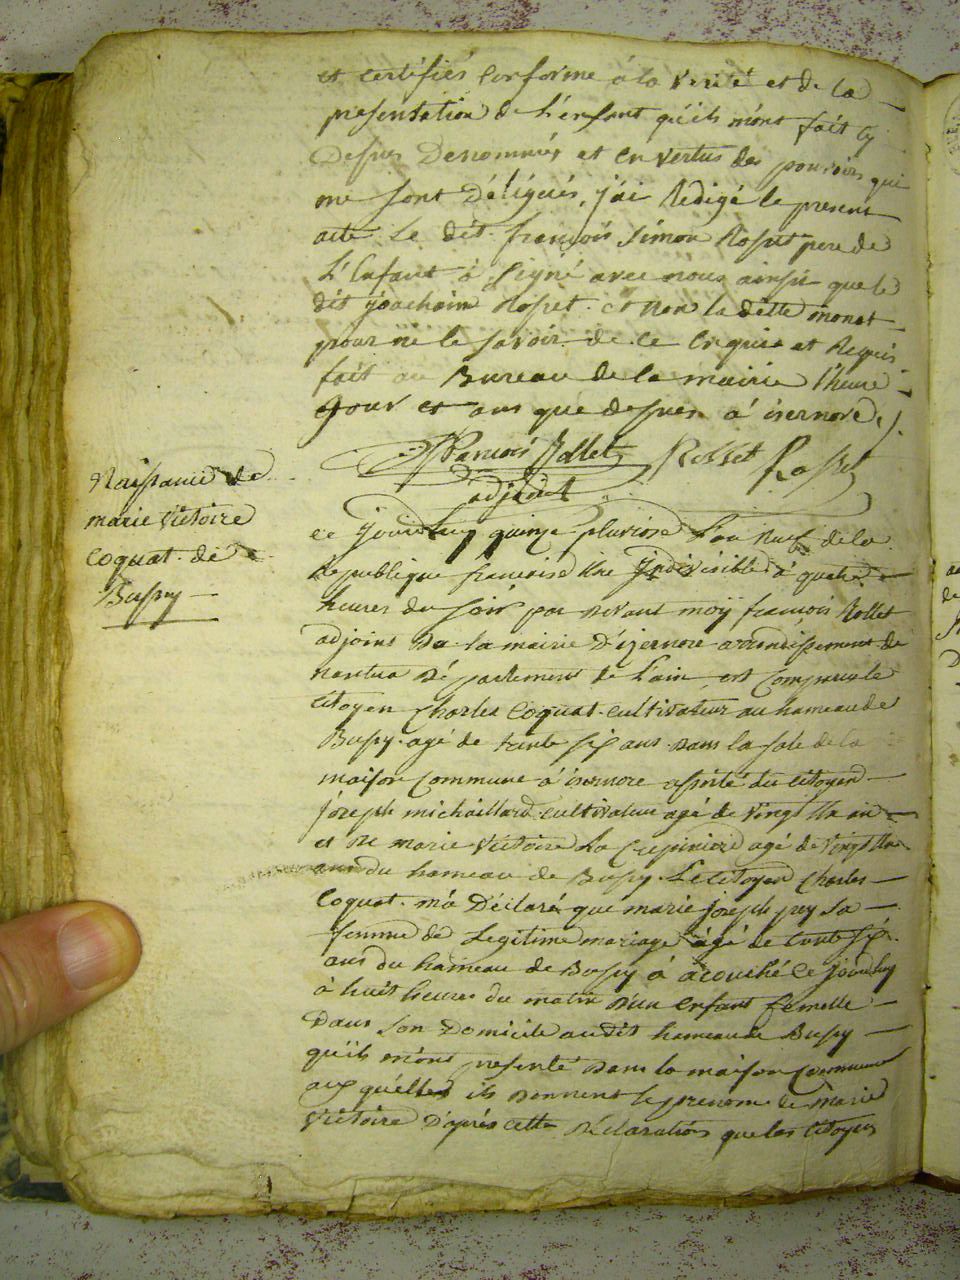 et certifiés conforme à la verité et de la
presentation de L'enfant qu'ils m'ont fait cy
Desus Denommés et en vertus des pouvoirs qui
me sont Délégués, j'ai Redigé le present
acte Le dit françois Simon Rosset pere de
L'Enfant à Signé avec nous ainsi que le
dit joachim Rosset et non la ditte monet
pour ne le savoir de ce enquis et Requis
fait au Bureau de la mairie l'heure
jour et ans que desus à isernore
françois Rollet Rosset Rosset
adjoint
Naissance de
marie victoire
Coquat de
Bussy
ce jourd'huy quinze pluviose L'an neuf de la
Republique francoise Une Indivisible à quatre
heures du soir par devant moij françois Rollet
adjoint de la mairie D'ijernore arrondissement de
nantua Département de L'ain est Comparus le
Citoyen Charles Coquat cultivateur au hameau de
Bussy agé de trente six ans dans la sale de la
maison Commune à isernore assisté du citoyen
joseph michaillard cultivateur agé de vingt Un an
et de marie victoire La agé de vingt Un
ans du hameau de Bussy. Le citoyen Charles
Coquat m'à Déclaré que marie joseph sa
femme de Legitime mariage agé de trente six
ans du hameau de Bussy à acouché ce jourd'huy
à huit heures du matin D'un enfant femelle
Dans son Domicile au dit hameau de Bussy
qu'ils m'ont presenté dans la maison Commune
auquelle ils donnent le prenom de marie
Victoire D'après cette Déclaration que les Citoyens